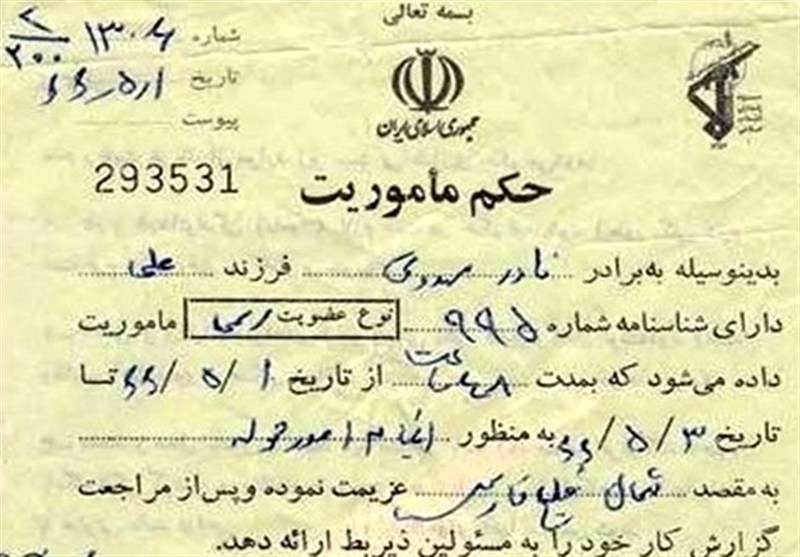 بسمه تعالی
شماره ۱۳۰۶
۲/۲۰۰
تاریخ ۱ر۵ر۶۶
پیوست
جمهوری اسلامی ایران
293531
حکم مأموریت
بدینوسیله به برادر نادر مهدوی فرزند علی
دارای شناسنامه شماره ۹۹۵ نوع عضویت رسمی ماموریت
داده می‌شود که بمدت ۴۸ ساعت از تاریخ ۱/۵/۶۶ تا
تاریخ ۳/۵/۶۶ به منظور انجام امور محوله
به مقصد شمال خلیج فارس عزیمت نموده و پس از مراجعت
گزارش کار خود را به مسئولین ذیربط ارائه دهد.